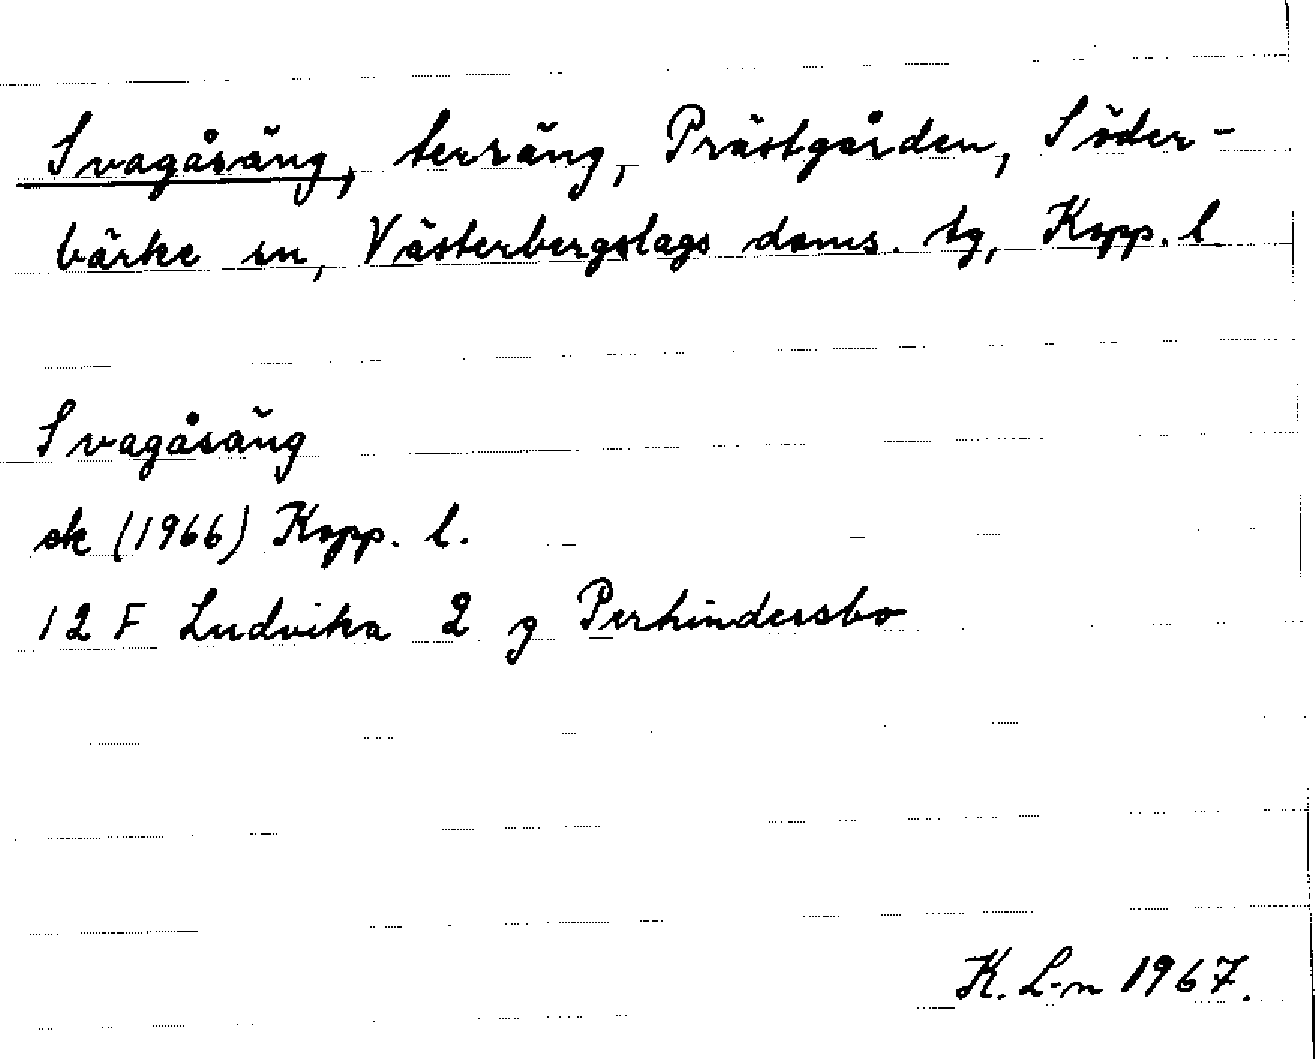 Svagåsäng, terräng, Prästgården, Söder-
bärke sn, Västerbergslags doms. tg, Kopp. l
Svagåsäng
ek (1966) Kopp. l.
12 F Ludvika 2 g Perhindersbo
K. L-n 1967.